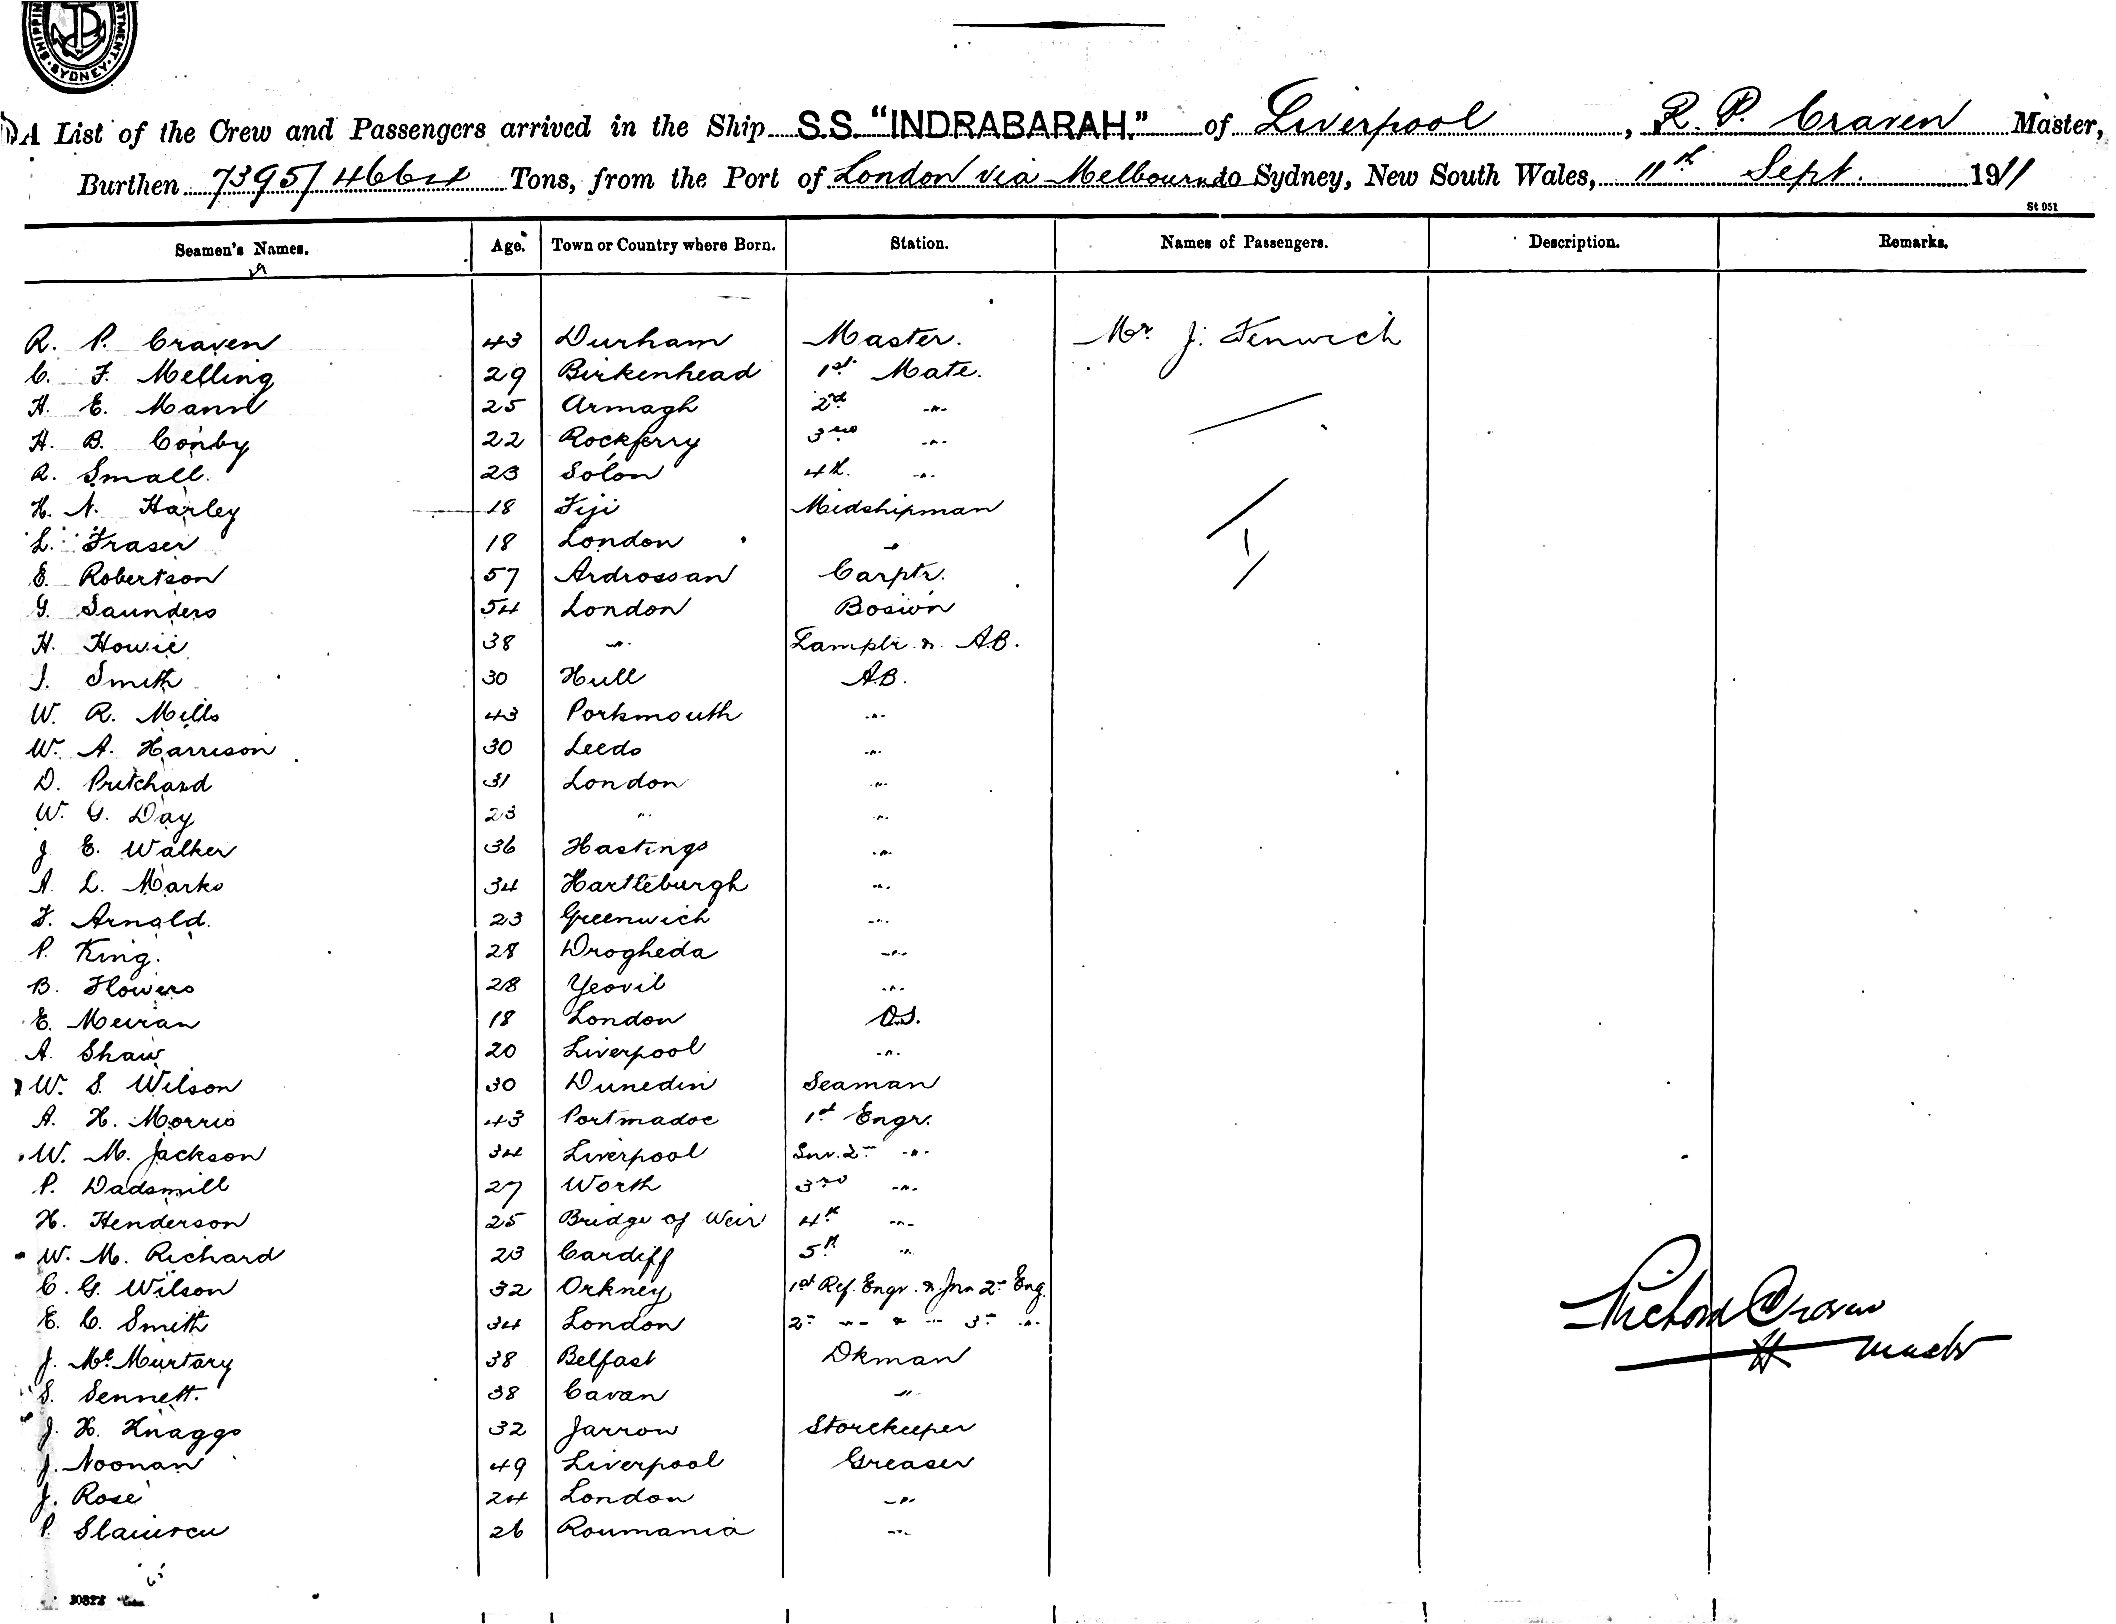 SYDNEY
A List of the Crew and Passengers arrived in the Ship S.S. "INDRABARAH." of Liverpool, R. P. Craven Master,
Burthen 7395/4664 Tons, from the Port of London via Melbourne to Sydney, New South Wales, 11th Sept. 1911
St 051
Seamen's Names. Age. Town or Country where Born. Station. Names of Passengers. Description. Remarks.
R. P. Craven 43 Durham Master. Mr J. Fenwick
C. F. Melling 29 Birkenhead 1st Mate.
H. E. Mann 25 Armagh 2nd -"-
H. B. Conby 22 Rockferry 3rd -"-
R. Small. 23 Solon 4th. -"-
H. N. Harley 18 Fiji Midshipman
L. Fraser 18 London "
E. Robertson 57 Ardrossan Carptr.
G. Saunders 54 London Boswn
H. Howie 38 -"- Lamptr. & A.B.
J. Smith 30 Hull A.B.
W. R. Mills 43 Portsmouth -"-
W. A. Harrison 30 Leeds -"-
D. Pritchard 31 London -"-
W. G. Day 23 " -"-
J. E. Walker 36 Hastings -"-
A. L. Marks 34 Hartleburgh -"-
F. Arnold. 23 Greenwich -"-
P. King. 28 Drogheda -"-
B. Flowers 28 Yeovil -"-
E. Meiran 18 London O.S.
A. Shaw 20 Liverpool -"-
W. S. Wilson 30 Dunedin Seaman
A. H. Morris 43 Portmadoc 1st Engr.
W. M. Jackson 34 Liverpool Snr. 2nd -"-
P. Dadsmill 27 Worth 3rd -"-
H. Henderson 25 Bridge of Weir 4th -"-
W. M. Richard 23 Cardiff 5th "
C. G. Wilson 32 Orkney 1st Ref. Engr. & Jnr 2nd Eng.
E. C. Smith 34 London 2nd -"- & -"- 3rd -"-
J. McMurtary 38 Belfast Dkman
S. Sennett. 38 Cavan "
J. H. Knaggs 32 Jarrow Storekeeper
J. Noonan 49 Liverpool Greaser
J. Rose 24 London -"-
P. 26 Roumania -"-
Richard Craven
Master